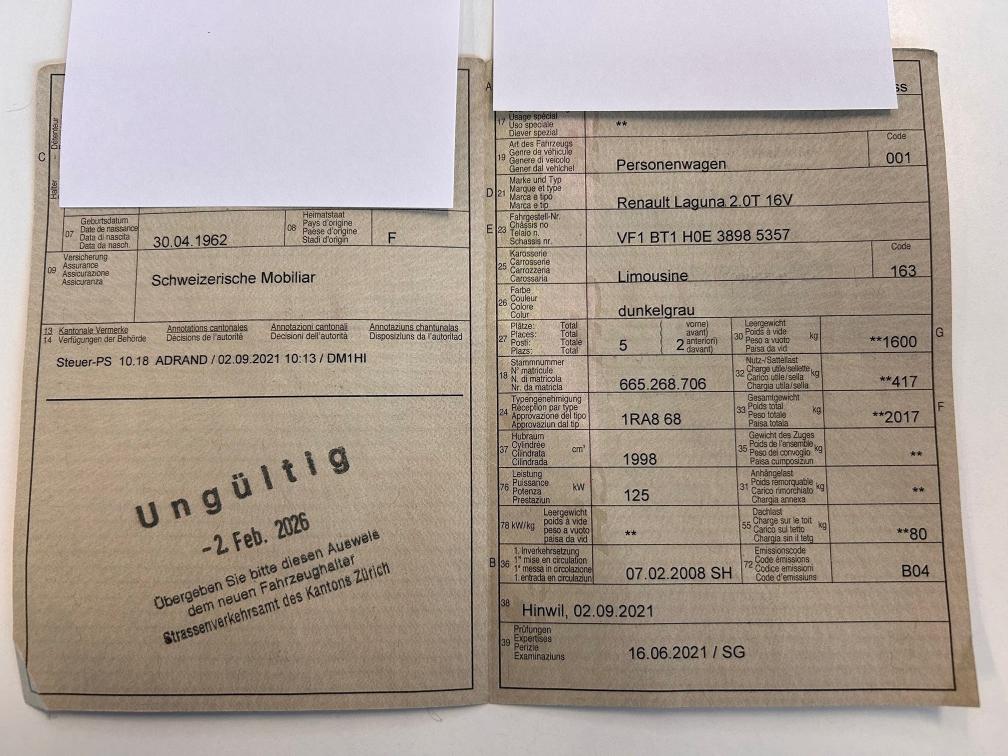 C
Halter - Détenteur
07
Geburtsdatum
Date de naissance
Data di nascita
Data da nasch.
30.04.1962
08
Heimatstaat
Pays d'origine
Paese d'origine
Stadi d'origin
F
09
Versicherung
Assurance
Assicurazione
Assicuranza
Schweizerische Mobiliar
13 Kantonale Vermerke
14 Verfügungen der Behörde
Annotations cantonales
Décisions de l'autorité
Annotazioni cantonali
Decisioni dell'autorità
Annotaziuns chantunalas
Disposiziuns da l'autoritad
Steuer-PS 10.18 ADRAND / 02.09.2021 10:13 / DM1HI
Ungültig
-2. Feb. 2026
Übergeben Sie bitte diesen Ausweis
dem neuen Fahrzeughalter
Strassenverkehrsamt des Kantons Zürich
A
ss
17
Usage spécial
Uso speciale
Diever spezial
**
19
Art des Fahrzeugs
Genre de véhicule
Genere di veicolo
Gener dal vehichel
Personenwagen
Code
001
D
21
Marke und Typ
Marque et type
Marca e tipo
Marca e tip
Renault Laguna 2.0T 16V
E
23
Fahrgestell-Nr.
Châssis no
Telaio n.
Schassis nr.
VF1 BT1 H0E 3898 5357
25
Karosserie
Carrosserie
Carrozzeria
Carossaria
Limousine
Code
163
26
Farbe
Couleur
Colore
Colur
dunkelgrau
27
Plätze: Total
Places: Total
Posti: Totale
Plazs: Total
5
vorne)
avant)
anteriori)
davant)
2
30
Leergewicht
Poids à vide
Peso a vuoto
Paisa da vid
kg
**1600
G
18
Stammnummer
N° matricule
N. di matricola
Nr. da matricla
665.268.706
32
Nutz-/Sattellast
Charge utile/sellette
Carico utile/sella
Chargia utila/sella
kg
**417
24
Typengenehmigung
Réception par type
Approvazione del tipo
Approvaziun dal tip
1RA8 68
33
Gesamtgewicht
Poids total
Peso totale
Paisa totala
kg
**2017
F
37
Hubraum
Cylindrée
Cilindrata
Cilindrada
cm³
1998
35
Gewicht des Zuges
Poids de l'ensemble
Peso del convoglio
Paisa cumposiziun
kg
**
76
Leistung
Puissance
Potenza
Prestaziun
kW
125
31
Anhängelast
Poids remorquable
Carico rimorchiato
Chargia annexa
kg
**
78 kW/kg
Leergewicht
poids à vide
peso a vuoto
paisa da vid
**
55
Dachlast
Charge sur le toit
Carico sul tetto
Chargia sin il tetg
kg
**80
B
36
1. Inverkehrsetzung
1re mise en circulation
1a messa in circolazione
1. entrada en circulaziun
07.02.2008 SH
72
Emissionscode
Code émissions
Codice emissioni
Code d'emissiuns
B04
38
Hinwil, 02.09.2021
39
Prüfungen
Expertises
Perizie
Examinaziuns
16.06.2021 / SG